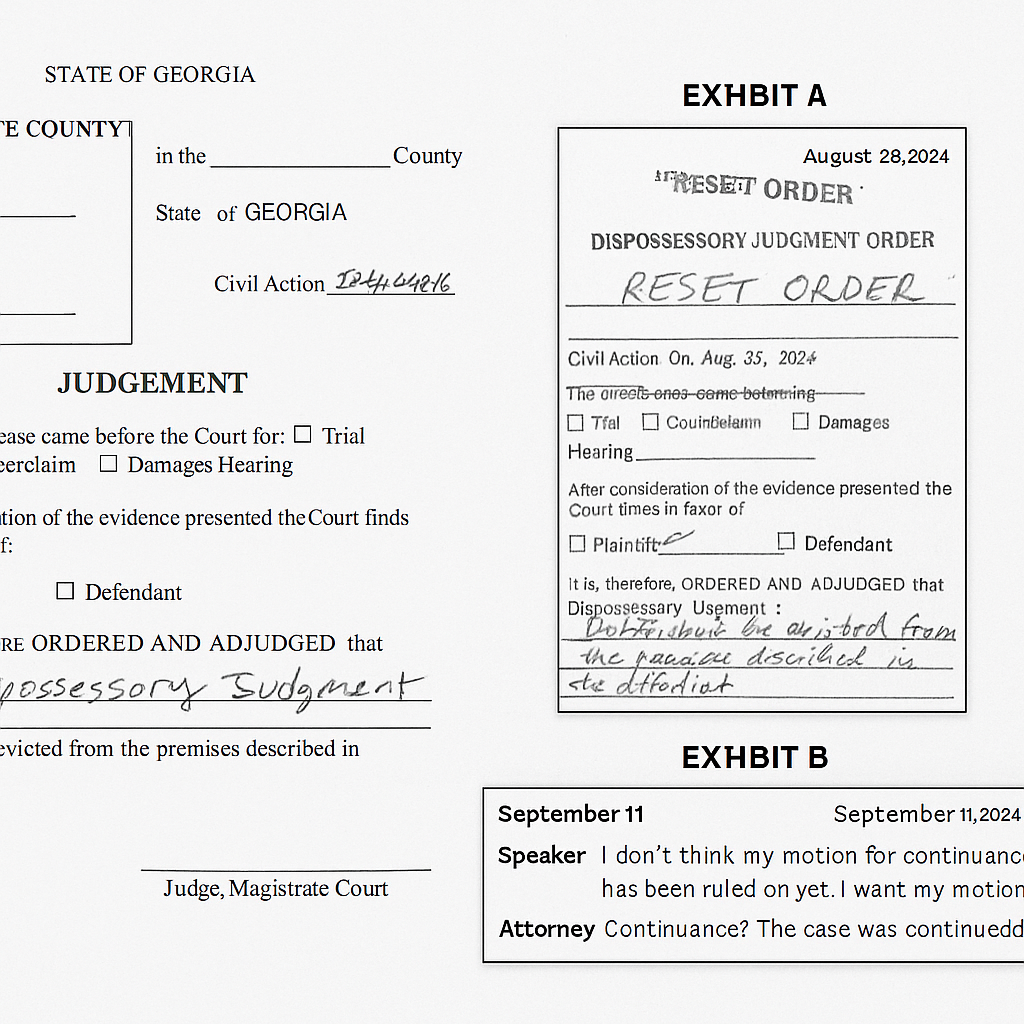 STATE OF GEORGIA
TE COUNTY
in the ____________ County
State of GEORGIA
Civil Action
JUDGEMENT
ease came before the Court for: ☐ Trial
eerclaim ☐ Damages Hearing
tion of the evidence presented the Court finds
f:
☐ Defendant
RE ORDERED AND ADJUDGED that
possessory Judgment
evicted from the premises described in
Judge, Magistrate Court
EXHBIT A
August 28,2024
RESET ORDER
DISPOSSESSORY JUDGMENT ORDER
RESET ORDER
Civil Action On. Aug. 35, 2024
The
☐ Tfal ☐ ☐ Damages
Hearing
After consideration of the evidence presented the
Court times in faxor of
☐ Plaintift ☐ Defendant
It is, therefore, ORDERED AND ADJUDGED that
Dispossessary Usement :
be from
the in
EXHBIT B
September 11 September 11,2024
Speaker I don't think my motion for continuanc
has been ruled on yet. I want my motion
Attorney Continuance? The case was continuedd